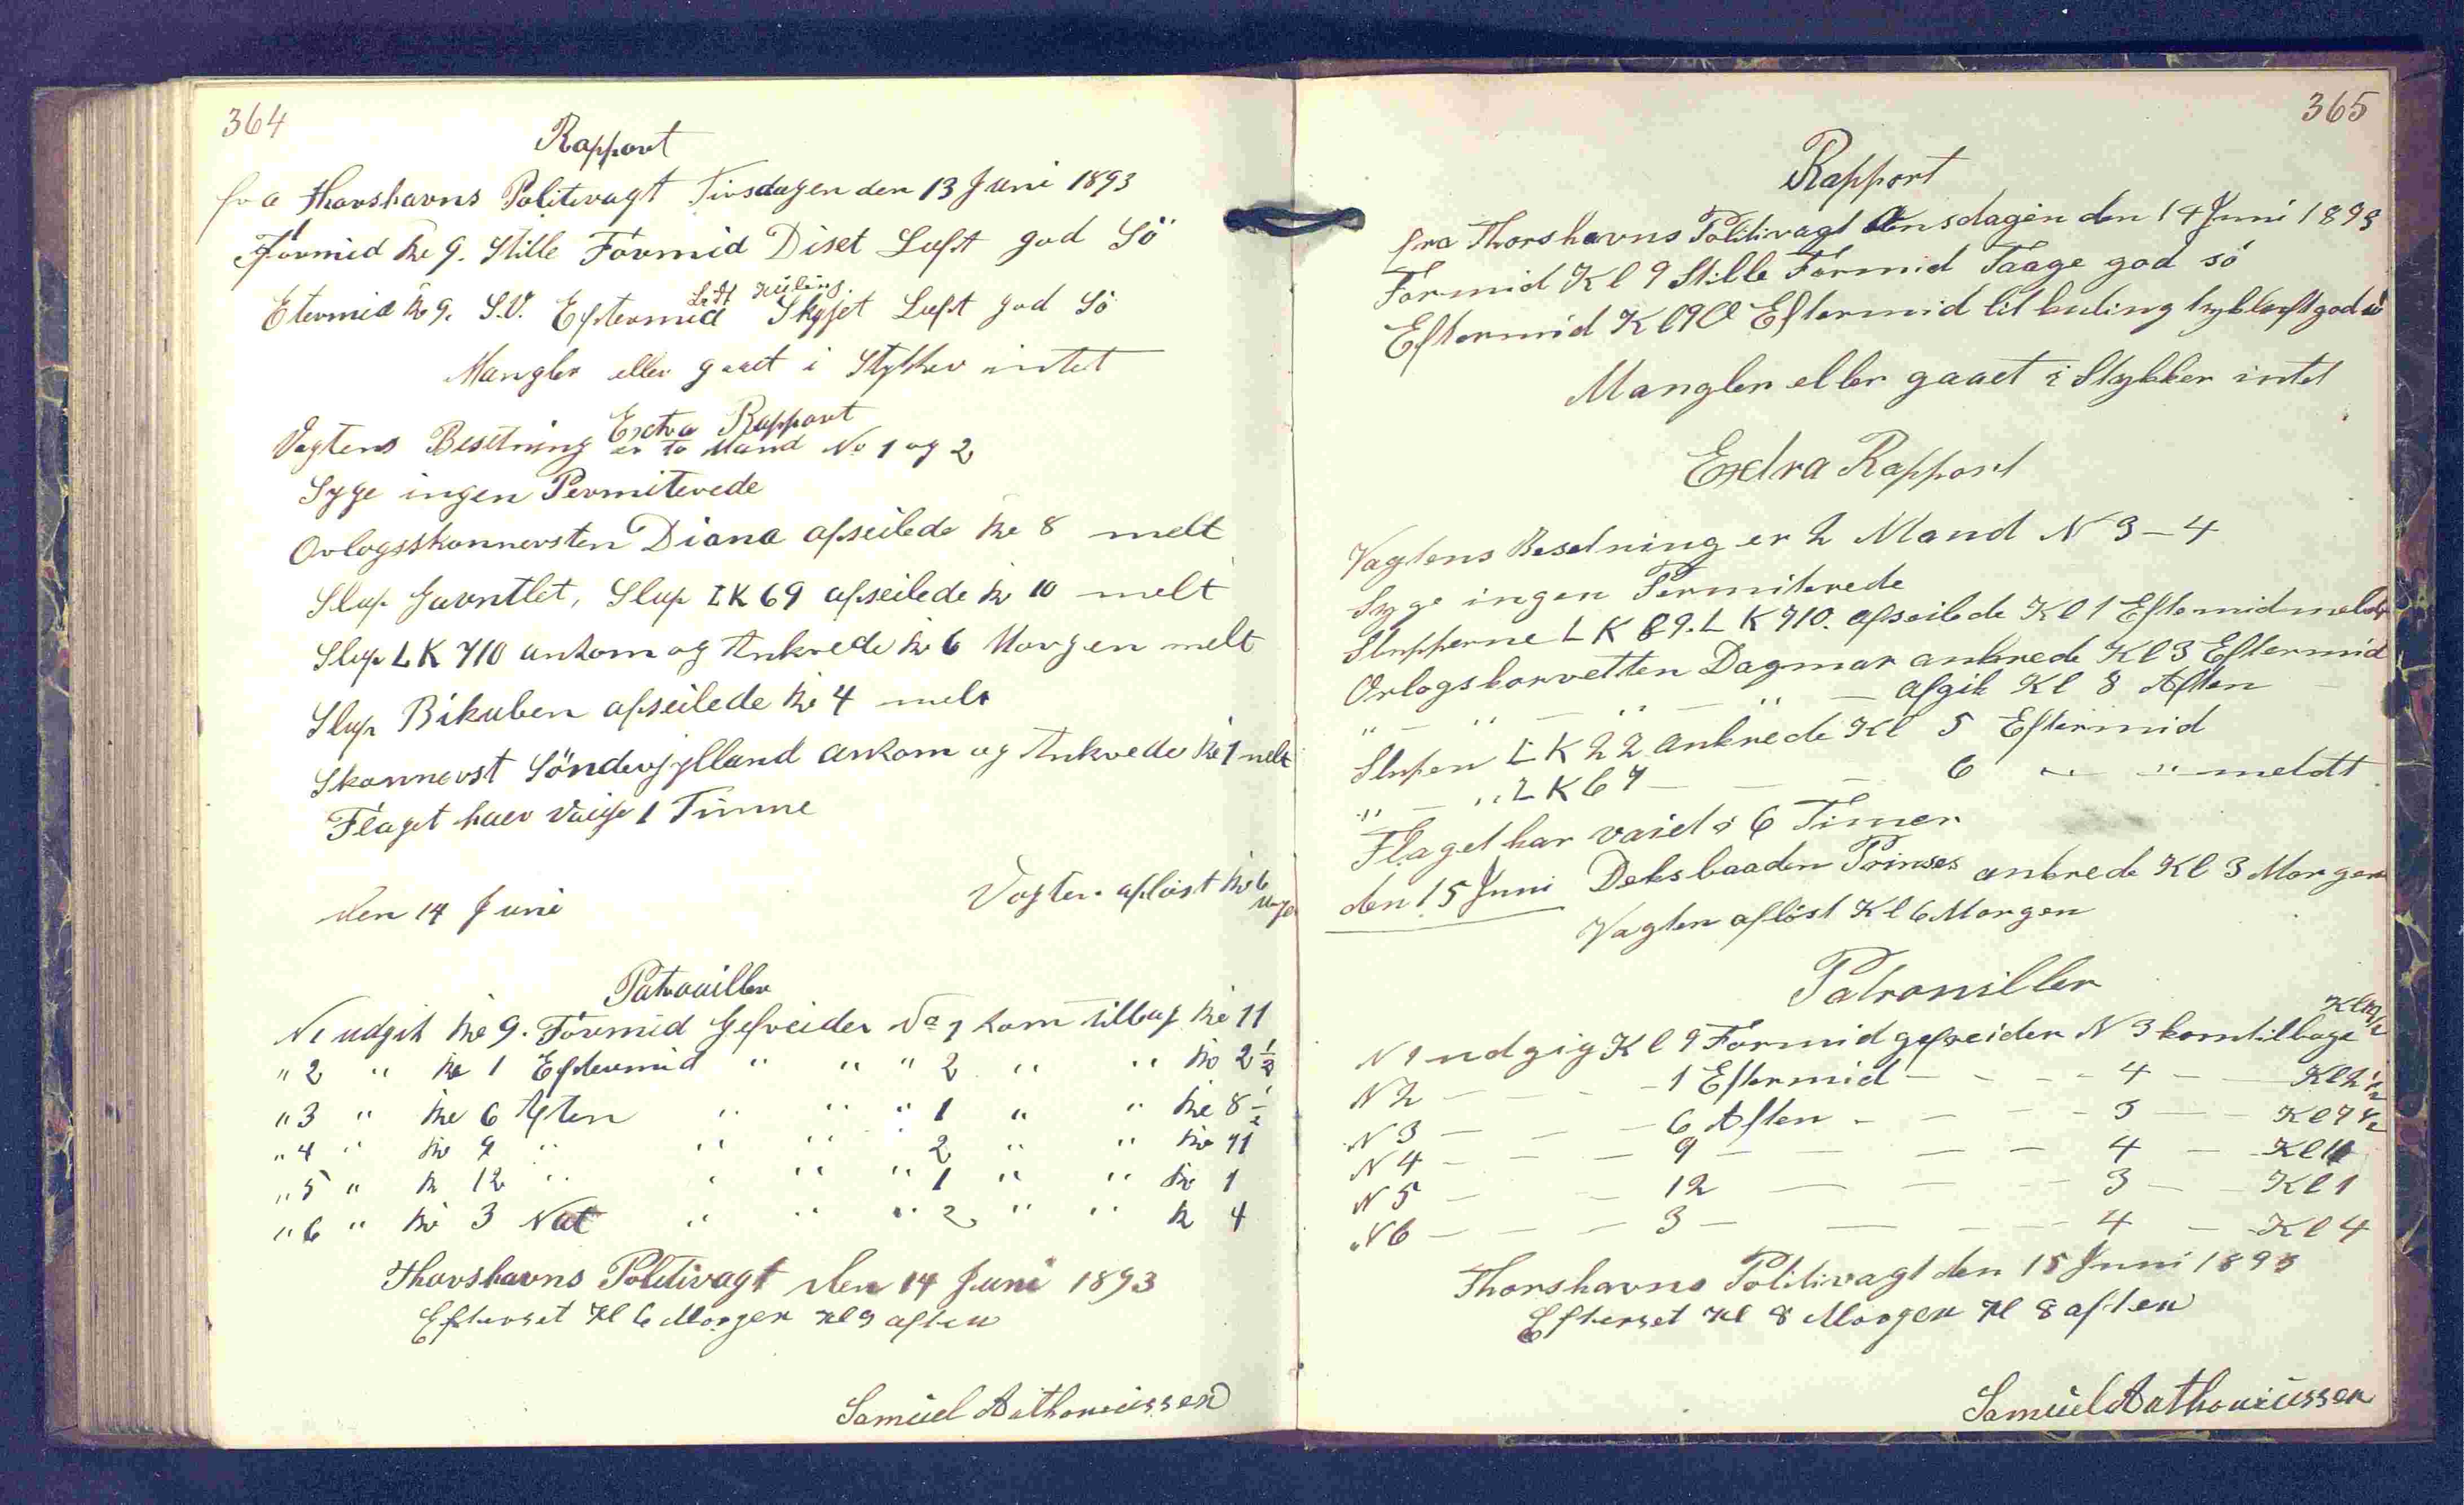 364
Rapport
fra Thorshavns Politivagt Tirsdagen den 13 Juni 1893
Formid Kl 9. Stille Formid Diset Luft god Sö
Etermid Kl 9. S.V. Eftermid Lidt Kuling. Skyjet Luft god Sö
Mangler eller gaaet i Stykker intet
Extra Rapport
Vagtens Besetning er to Mand No 1 og 2
Syge ingen Permiterede
Orlogsskonnersten Diana afseilede Kl 8 melt
Slup Gauntlet, Slup LK 69 afseilede Kl 10 melt
Slup LK 710 ankom og Ankrede Kl 6 Morgen melt
Slup Bikuben afseilede Kl 4 melt
Skonnerst Sönderjylland ankom og Ankrede Kl 1 melt
Flaget haer 1 Timme
den 14 Juni Vagten aflöst Kl 6
Patrouiller
N1 udgik Kl 9. Formid Gefreider No 1 kom tilbag Kl 11
" 2 " Kl 1 Eftermid " " " 2 " " Kl 2 1/2
" 3 " Kl 6 Aften " " " 1 " " Kl 8 1/2
" 4 " Kl 9 " " " 2 " " Kl 11
" 5 " Kl 12 " " " " 1 " " Kl 1
" 6 " Kl 3 Nat " " " 2 " " Kl 4
Thorshavns Politivagt den 14 Juni 1893
Efterset Kl 6 Morgen Kl 9 aften
Samuel
365
Rapport
fra Thorshavns Politivagt Onsdagen den 14 Juni 1893
Formid Kl 9 Stille Formid Taage god sö
Eftermid Kl 9 Eftermid lit kuling god sö
Mangler eller gaaet i Stykker intet
Extra Rapport
Vagtens Besetning er 2 Mand N 3 – 4
Syge ingen Permiterede
Slupperne LK 69. LK 710. afseilede Kl 1 Eftemid meldt
Orlogskorvetten Dagmar ankrede Kl 3 Eftermid
" – " – " – " – afgik Kl 8 Aften –
Slupen LK 22 ankrede Kl 5 Eftermid
" – " LK 67 – – – 6 " " meldt
Flaget har vaiet i 6 Timer
den 15 Juni Deksbaaden Prinses ankrede Kl 3 Morgen
Vagten aflöst Kl 6 Morgen
Patrouiller
N 1 udgig Kl 9 Formid gefreider N 3 kom tilbage
N 2 – – – 1 Eftermid – – – – 4 – – Kl 2 1/2
N 3 – – – 6 Aften – – – – 3 – – Kl 7 1/2
N 4 – – – 9 – – – – 4 – Kl 11
N 5 – – 12 – – – 3 – – Kl 1
N 6 – – – 3 – – – – 4 – Kl 4
Thorshavns Politivagt den 15 Juni 1893
Efterset Kl 8 Morgen Kl 8 aften
Samuel